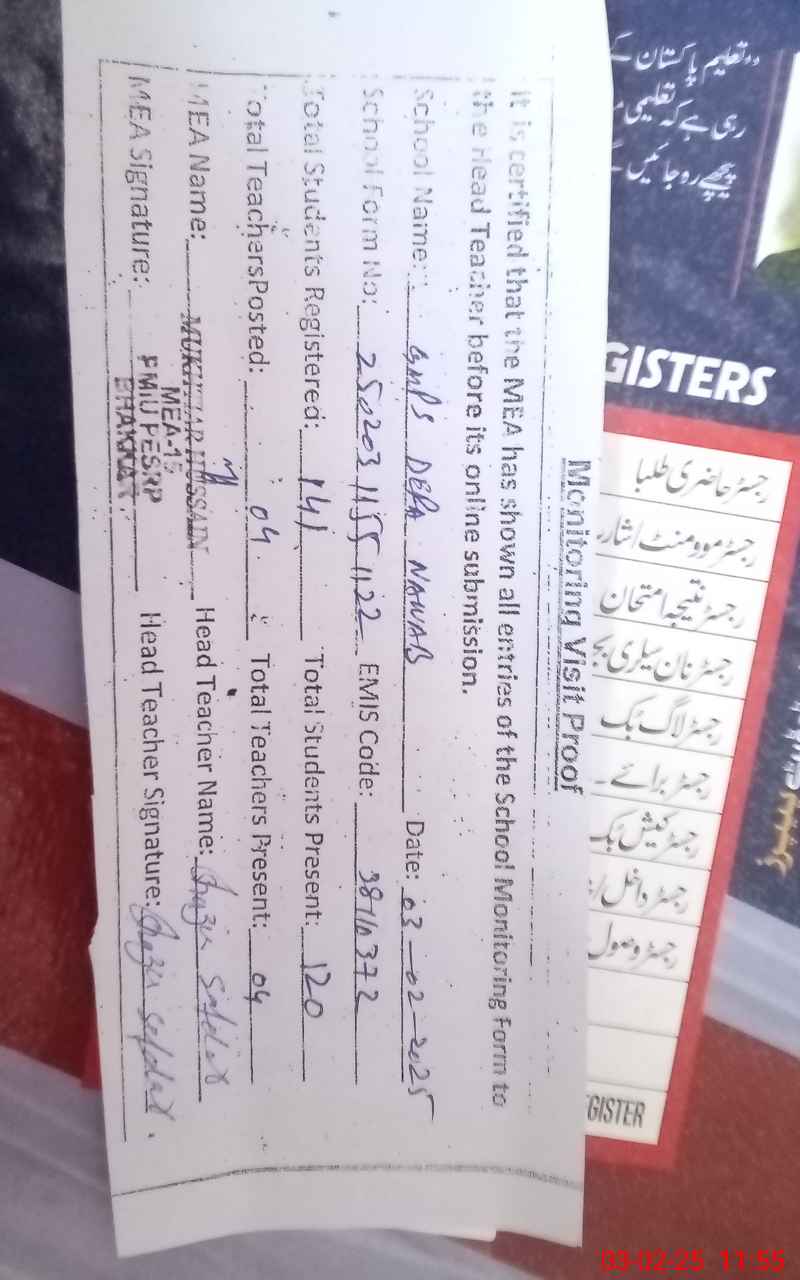 Monitoring Visit Proof
It is certified that the MEA has shown all entries of the School Monitoring Form to
the Head Teacher before its online submission.
School Name: GMPS DERA NAWAB Date: 03-02-2025
School Form No: EMIS Code:
Total Students Registered: 141 Total Students Present: 120
Total Teachers Posted: 04 Total Teachers Present: 04
MEA Name: MUKHTIAR HUSSAIN Head Teacher Name: Shazia Safdar
MEA-15
MEA Signature: PMIU PESRP Head Teacher Signature: Shazia Safdar.
BHAKKAR.
"تعلیم پاکستان کے
رہی ہے کہ تعلیمی
پیچھے رہ جائیں گے
GISTERS
رجسٹر حاضری طلبا
رجسٹر موومنٹ اسٹاف
رجسٹر نتیجہ امتحان
رجسٹر نان سیلری بجٹ
رجسٹر لاگ بک
رجسٹر برائے
رجسٹر کیش بک
رجسٹر داخل
رجسٹر وصول
GISTER
03-02-25 11:55